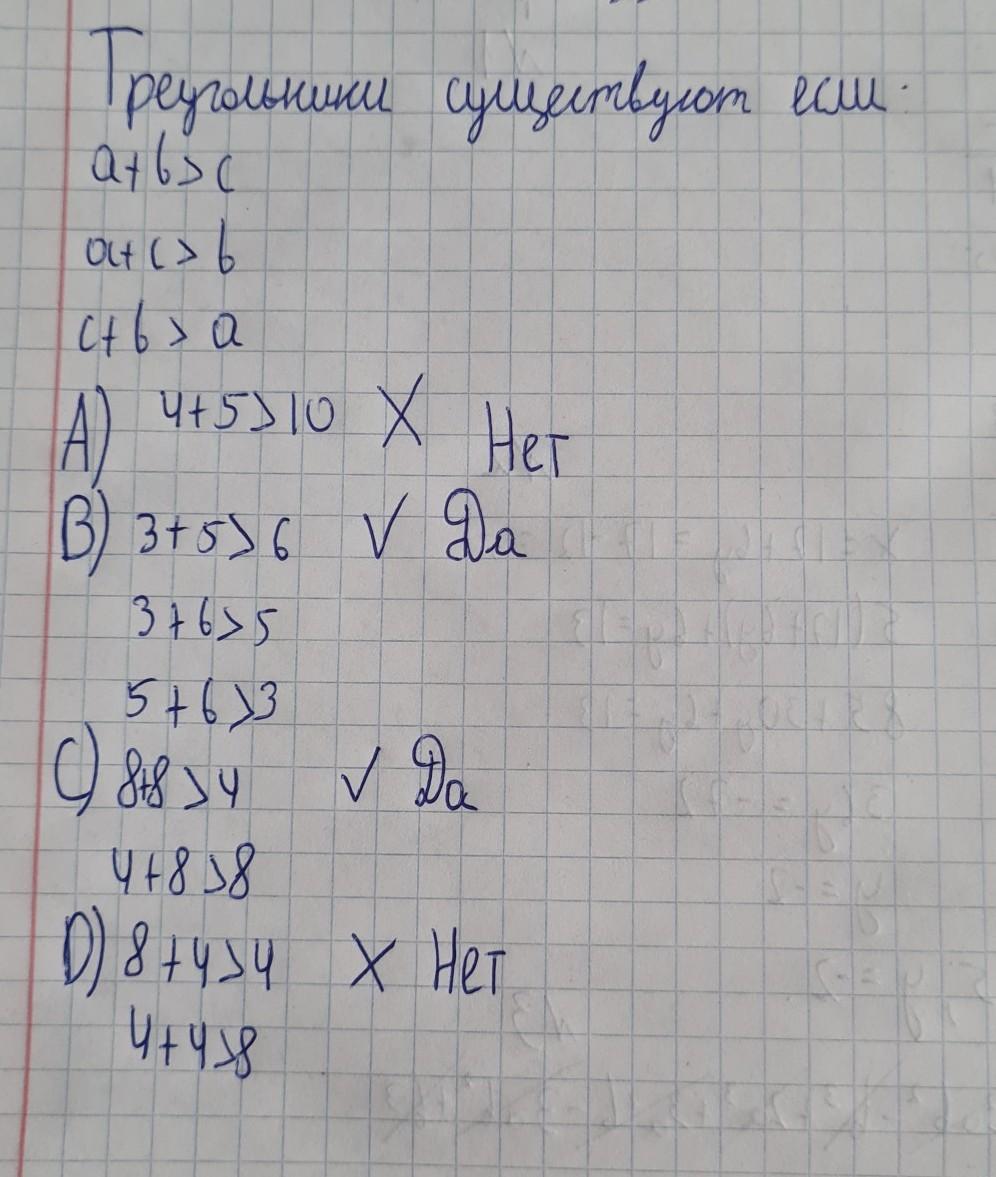 Треугольники существуют если:
a+b>c
a+c>b
c+b>a
A) 4+5>10 X Нет
B) 3+5>6 ✓ Да
3+6>5
5+6>3
C) 8+8>4 ✓ Да
4+8>8
D) 8+4>4 X Нет
4+4>8